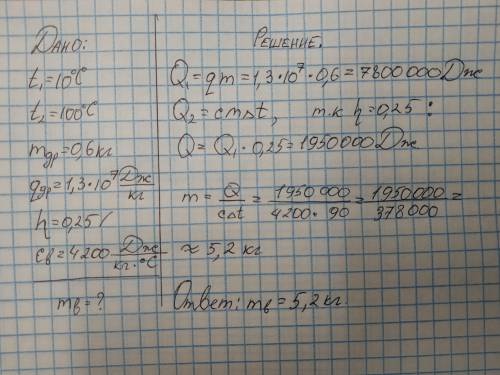 Дано:
t₁=10°C
t₂=100°C
mдр=0,6кг
qдр=1,3•10⁷ Дж/кг
h=0,25/
cв=4200 Дж/кг•°C
mв=?
Решение.
Q₁=qm=1,3•10⁷•0,6=7800000Дж
Q₂=cm∆t, т.к h=0,25:
Q=Q₁•0,25=1950000Дж
m=Q/c∆t=1950000/4200•90=1950000/378000=
≈5,2кг
Ответ: mв=5,2кг.